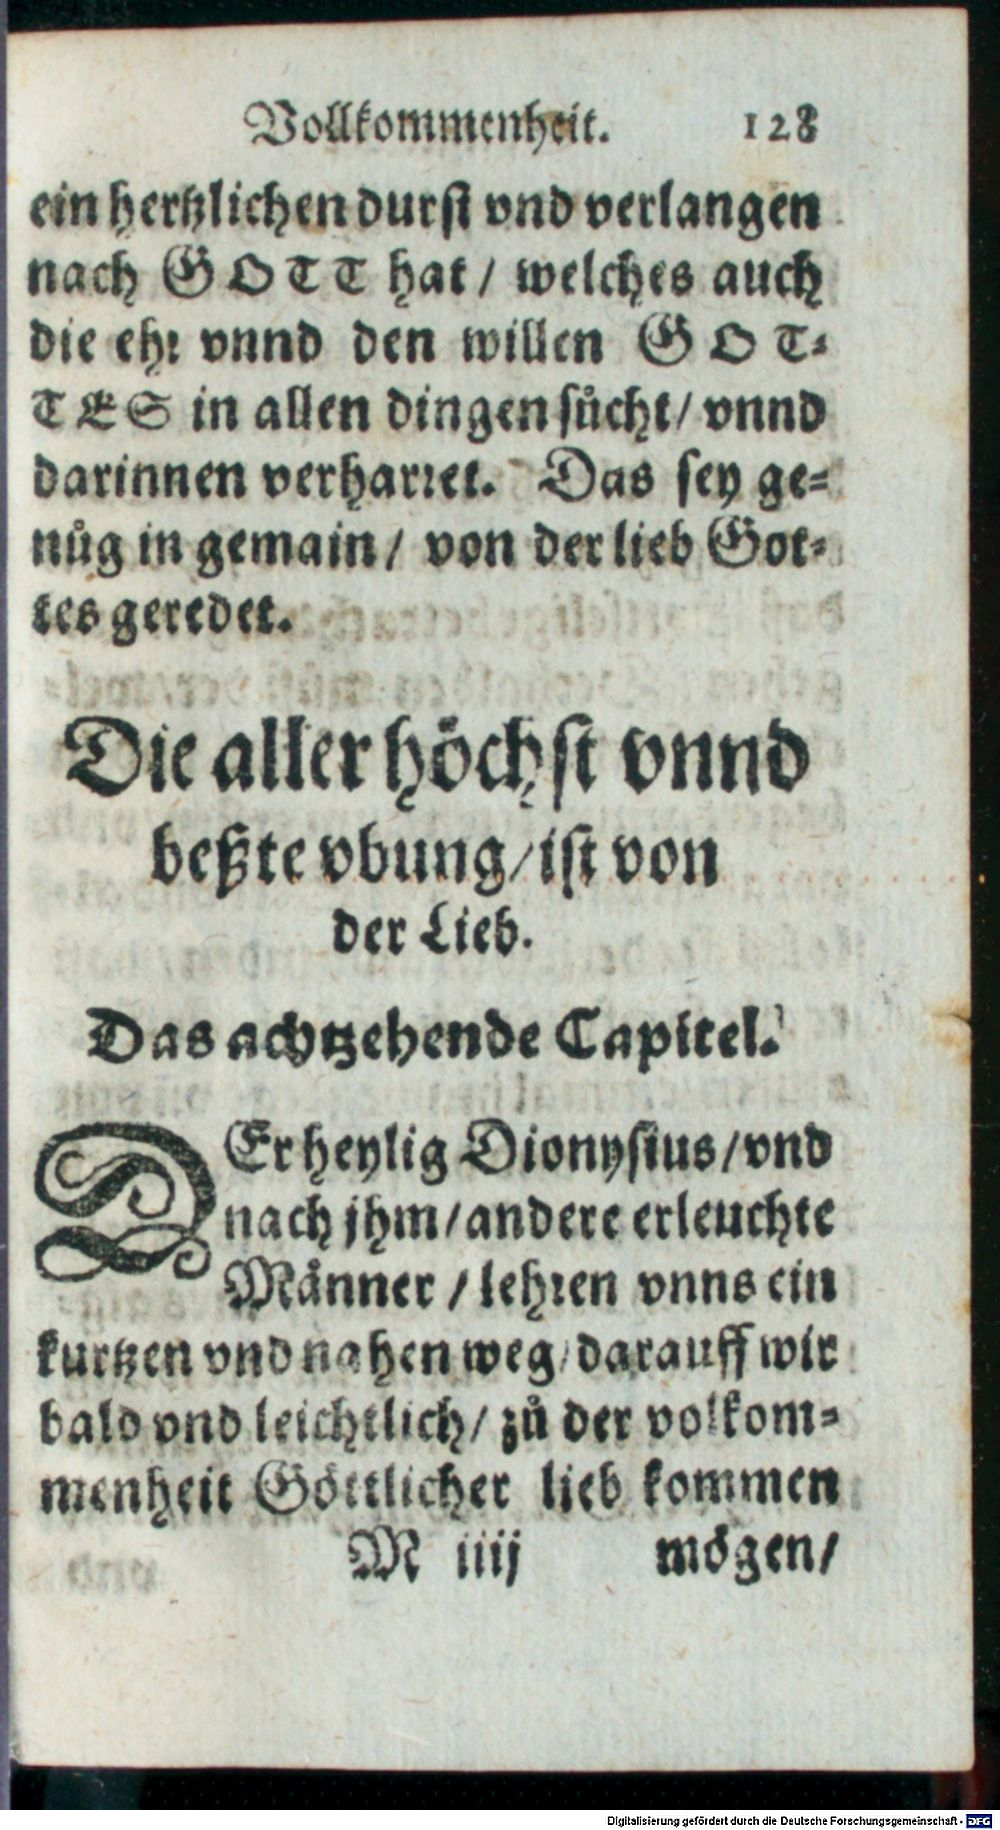 Vollkommenheit. 128
ein hertzlichen durst vnd verlangen
nach GOTT hat / welches auch
die ehr vnnd den willen GOT-
TES in allen dingen sůcht / vnnd
darinnen verharret. Das sey ge-
nůg in gemain / von der lieb Got-
tes geredet.
Die aller höchst vnnd
beßte vbung / ist von
der Lieb.
Das achtzehende Capitel.
DEr heylig Dionysius / vnd
nach jhm / andere erleuchte
Månner / lehren vnns ein
kurtzen vnd nahen weg / darauff wir
bald vnd leichtlich / zů der volkom-
menheit Göttlicher lieb kommen
M iiij mögen /
Digitalisierung gefördert durch die Deutsche Forschungsgemeinschaft - DFG